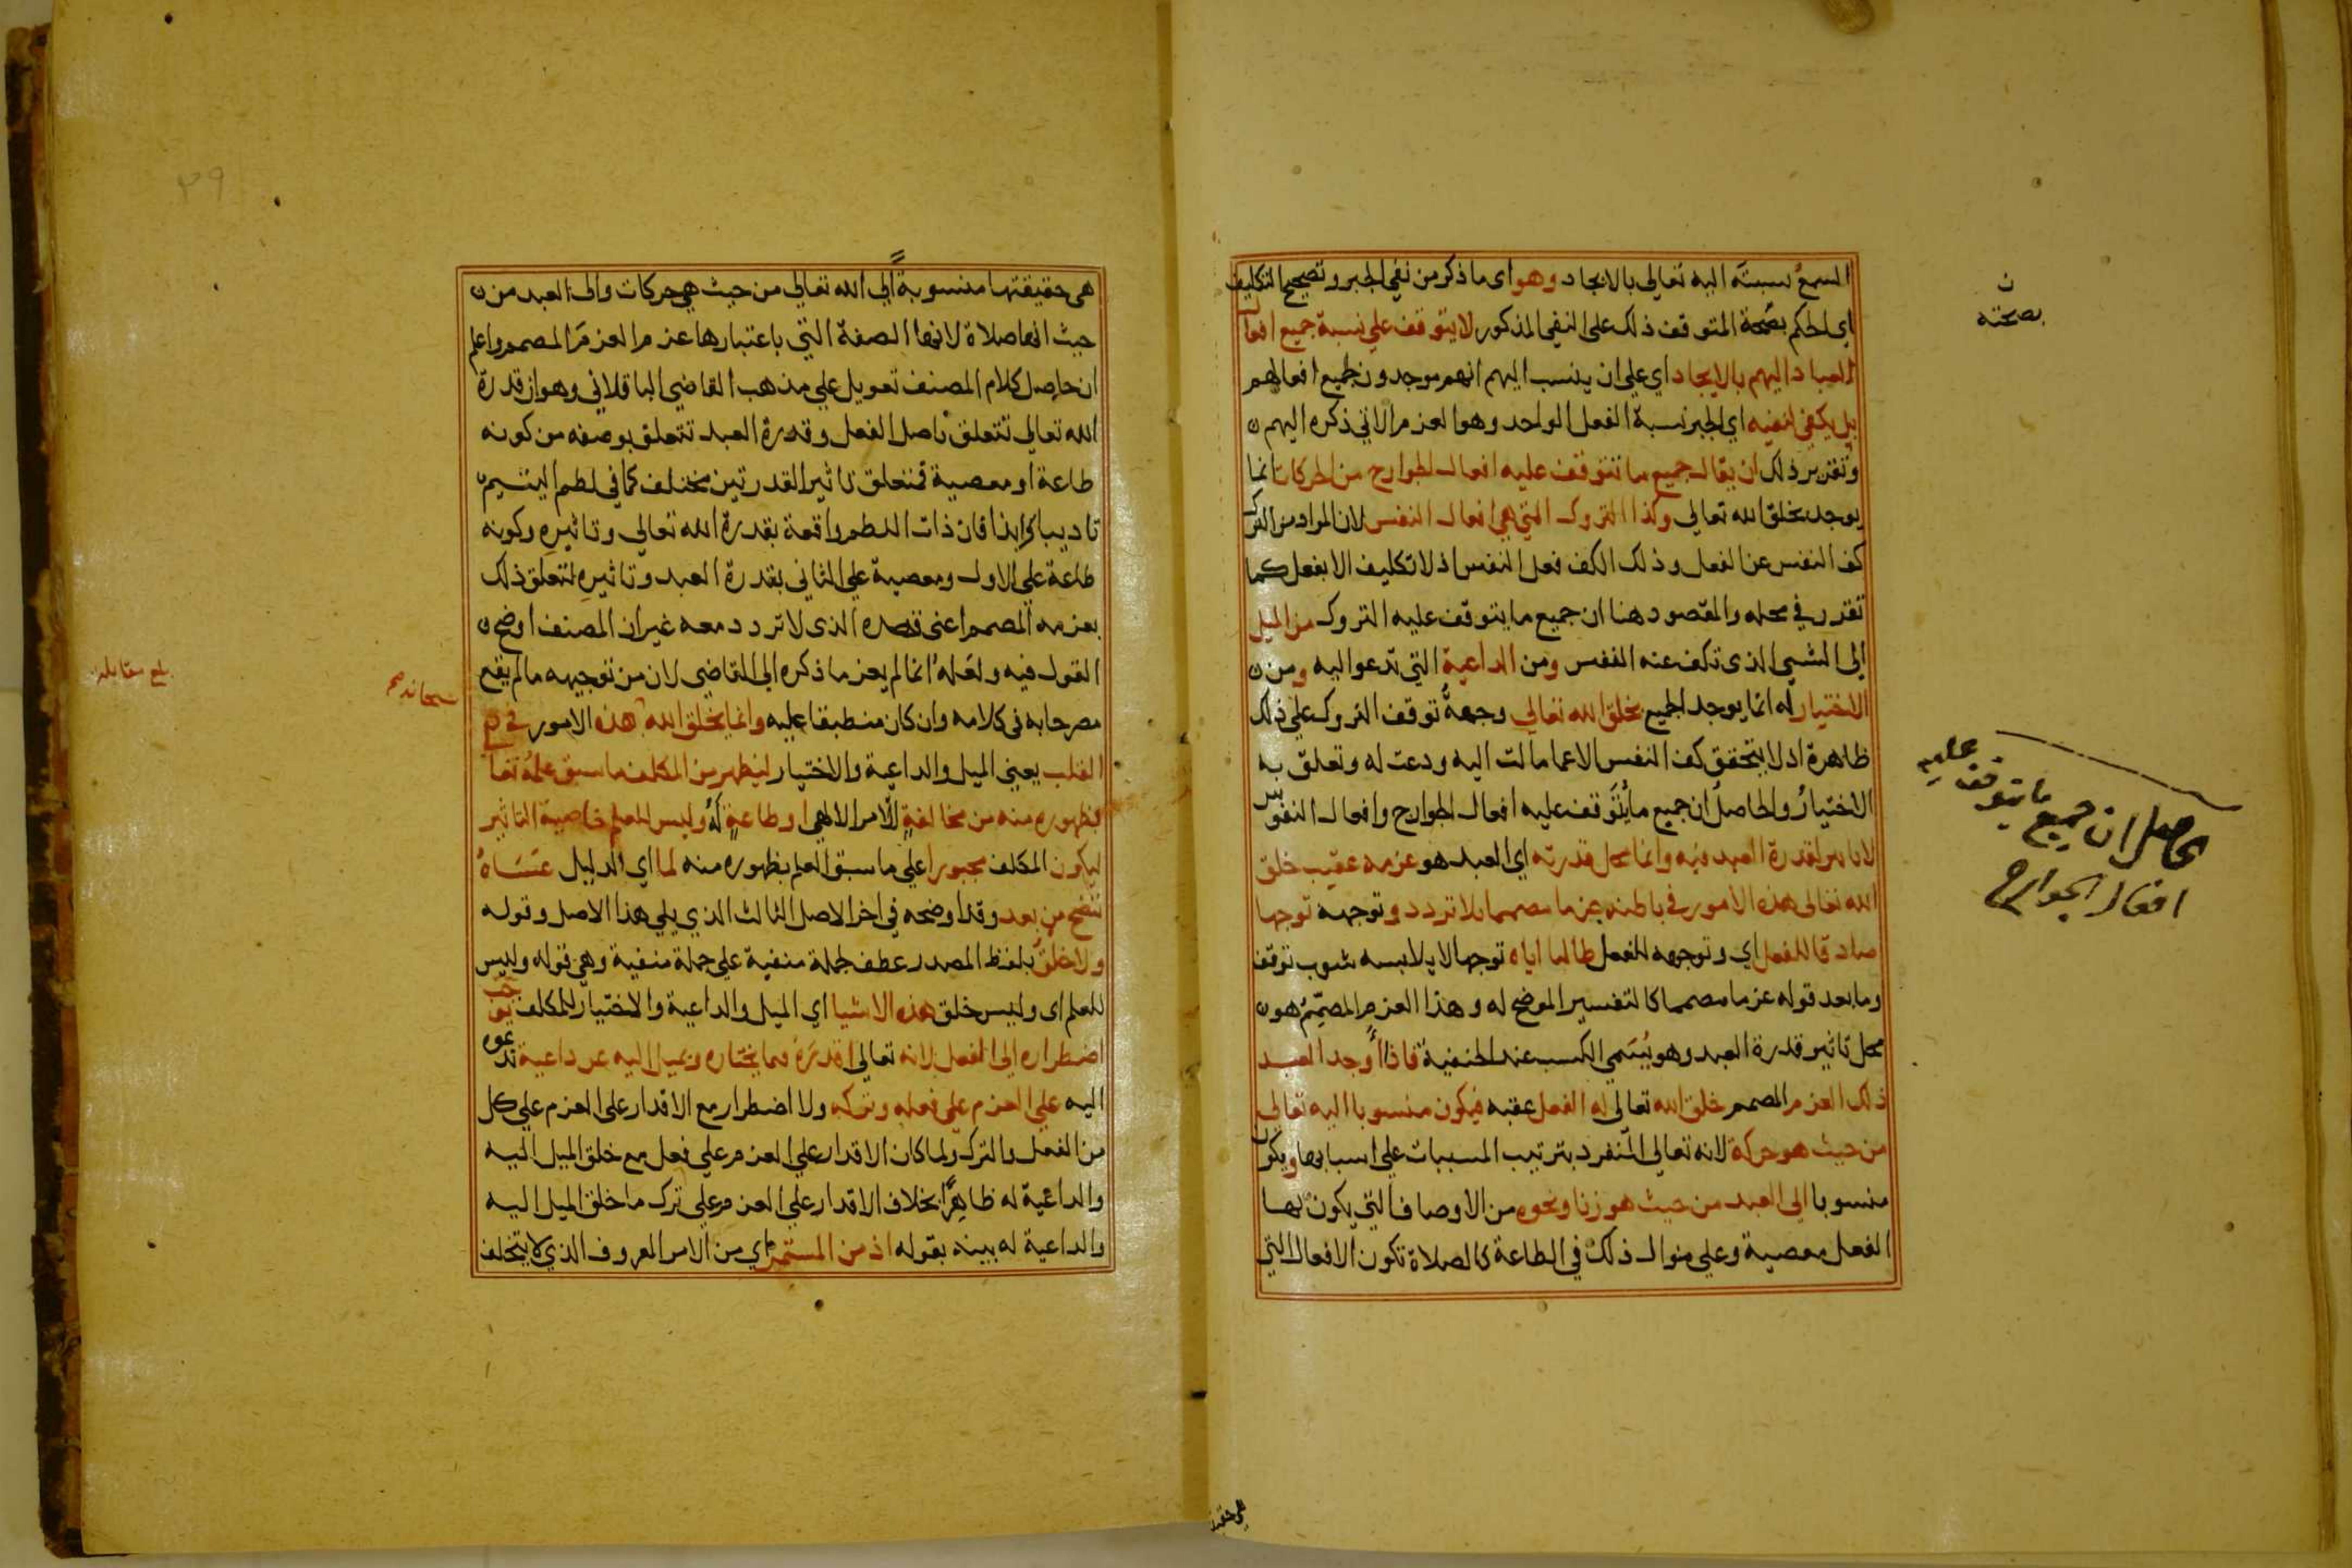 السمع نسبته اليه تعالى بالايجاد وهو اى ما ذكر من نفي الجبر وتصحيح التكليف
اي الحكم بصحة المتوقف ذلك على النفي المذكور لا يتوقف علي نسبة جميع افعال
العباد اليهم بالايجاد اي علي ان ينسب اليهم انهم موجدون لجميع افعالهم
بل يكفي لنفيه اي الجبر نسبة الفعل الواحد وهو العزم الاتي ذكره اليهم
وتقرير ذلك ان يقال جميع ما تتوقف عليه افعال الجوارح من الحركات انما
يوجد بخلق الله تعالى وكذا التروك التي هي افعال النفس لان المراد من الترك
كف النفس عن الفعل وذلك الكف فعل النفس اذ لا تكليف الا بفعل كما
تقرر في محله والمقصود هنا ان جميع ما يتوقف عليه التروك من الميل
الى الشيي الذى تكف عنه النفس ومن الداعية التي تدعو اليه ومن
الاختيار له انما يوجد الجميع بخلق الله تعالي وجهة توقف التروك علي ذلك
ظاهرة اذ لا يتحقق كف النفس الا عما مالت اليه ودعت له وتعلق به
الاختيار والحاصل ان جميع ما يتوقف عليه افعال الجوارح وافعال النفوس
لا تاثير لقدرة العبد فيه وانما محل قدرته اي العبد هو عزمه عقيب خلق
الله تعالى هذه الامور في باطنه عزما مصمما بلا تردد وتوجهه توجها
صادقا للفعل اي وتوجهه للفعل طالبا اياه توجها لا يلابسه شوب توقف
وما بعد قوله عزما مصمما كالتفسير الموضح له وهذا العزم المصمم هو
محل تاثير قدرة العبد وهو يسمي الكسب عند الحنفية فاذا اوجد العبد
ذلك العزم المصمم خلق الله تعالى له الفعل عقبه فيكون منسوبا اليه تعالى
من حيث هو حركة لانه تعالى المنفرد بترتيب المسببات علي اسبابها ويكون
منسوبا الى العبد من حيث هو زنا ونحوه من الاوصاف التي يكون بها
الفعل معصية وعلي منوال ذلك في الطاعة كالصلاة تكون الافعال التي
ن
بصحته
حاصل ان جميع ما يتوقف عليه
افعال الجوارح
هى حقيقتها منسوبة الي الله تعالي من حيث هي حركات والى العبد من
حيث انها صلاة لانها الصفة التي باعتبارها عزم العزم المصمم واعلم
ان حاصل كلام المصنف تعويل علي مذهب القاضي الباقلاني وهو ان قدرة
الله تعالي تتعلق باصل الفعل وقدرة العبد تتعلق بوصفه من كونه
طاعة او معصية فمتعلق تاثير القدرتين مختلف كما في لطم اليتيم
تاديبا وايذا فان ذات اللطم واقعة بقدرة الله تعالي وتاثيره وكونه
طاعة علي الاول ومعصية علي الثاني بقدرة العبد وتاثيره لتعلق ذلك
بعزمه المصمم اعني قصده الذى لا تردد معه غير ان المصنف اوضح
القول فيه ولعله انما لم يعز ما ذكره الى القاضي لان من توجيهه ما لم يقع
مصرحا به في كلامه وان كان منطبقا عليه وانما يخلق الله هذه الامور في
القلب يعني الميل والداعية والاختيار ليظهر من المكلف ما سبق علمه تعا
بظهوره منه من مخالفة للامر الالهي او طاعة له وليس للعلم خاصية التاثير
ليكون المكلف مجبورا علي ما سبق العلم بظهوره منه لما اي لدليل عساه
تتضح من بعد وقد اوضحه في اخر الاصل الثالث الذي يلي هذا الاصل وقوله
ولا خلق بلفظ المصدر عطف جملة منفية علي جملة منفية وهي قوله وليس
للعلم اى وليس خلق هذه الاشيا اي الميل والداعية والاختيار للمكلف يوجب
اضطراره الى الفعل لانه تعالى اقدره فيما يختاره ويميل اليه عن داعية تدعوه
اليه علي العزم علي فعله وتركه ولا اضطرار مع الاقدار على العزم علي كل
من الفعل والترك ولما كان الاقدار علي العزم علي فعل مع خلق الميل اليه
والداعية له ظاهرا بخلاف الاقدار علي العزم علي ترك ما خلق الميل اليه
والداعية له بينه بقوله اذ من المستمر اي من الامر المعروف الذي لا يتخلف
سبحانه صح
بلغ مقابلة
٣٩